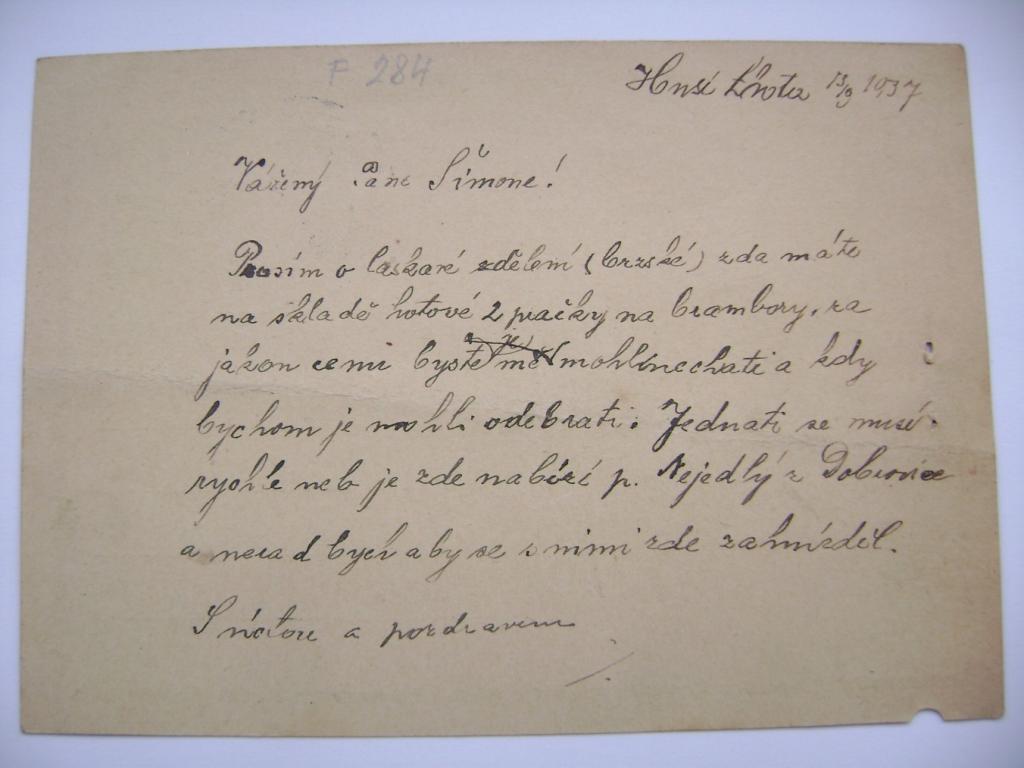 F 284
Husí Lhota 13/9 1937
Vážený Pane Šimone!
Prosím o laskavé sdělení (brzské) zda máte
na skladě hotové 2 pračky na brambory, za
jakou cenu byste mohli nechati a kdy
bychom je mohli odebrati. Jednati se musí
rychle neb je zde nabízí p. Nejedlý z Dobrovice
a nerad bych aby se s nimi zde zahnízdil.
S úctou a pozdravem